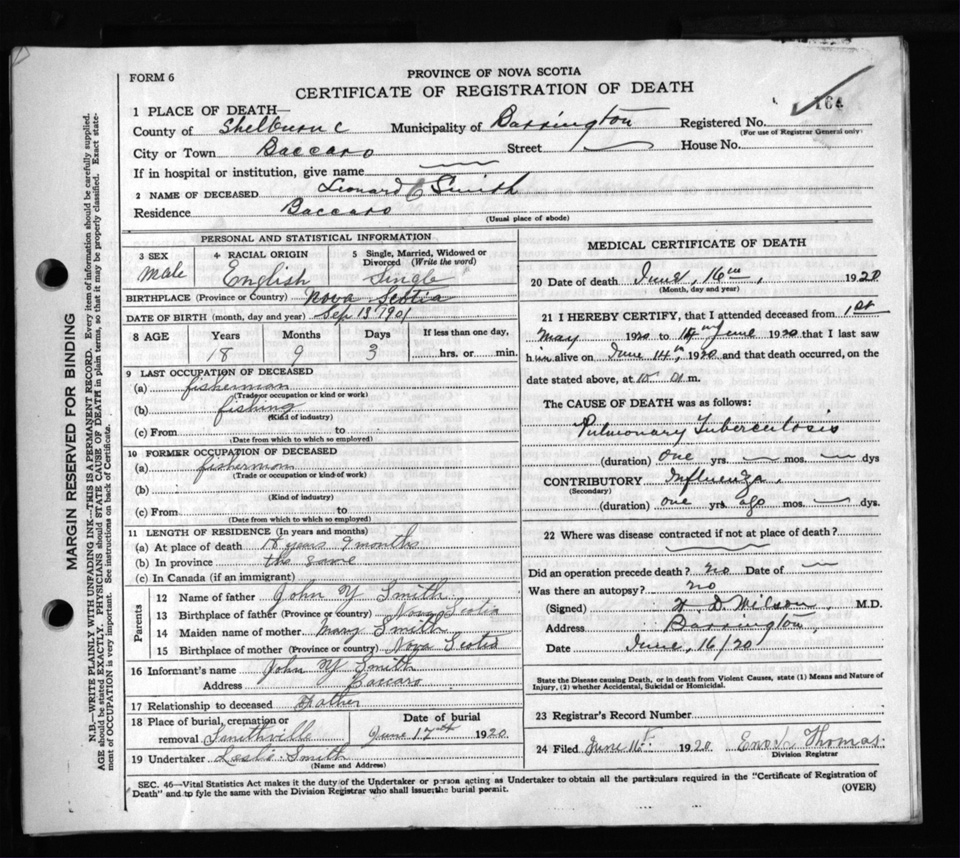 FORM 6
PROVINCE OF NOVA SCOTIA
CERTIFICATE OF REGISTRATION OF DEATH
1 PLACE OF DEATH—
County of Shelburne Municipality of Barrington Registered No. 164
(For use of Registrar General only)
City or Town Baccaro Street House No.
If in hospital or institution, give name
2 NAME OF DECEASED Leonard C Smith
Residence Baccaro
(Usual place of abode)
PERSONAL AND STATISTICAL INFORMATION
3 SEX Male
4 RACIAL ORIGIN English
5 Single, Married, Widowed or Divorced (Write the word) Single
BIRTHPLACE (Province or Country) Nova Scotia
DATE OF BIRTH (month, day and year) Sep 13 1901
8 AGE Years Months Days If less than one day,
18 9 3 hrs. or min.
9 LAST OCCUPATION OF DECEASED
(a) fisherman
(Trade or occupation or kind or work)
(b) fishing
(Kind of industry)
(c) From to
(Date from which to which so employed)
10 FORMER OCCUPATION OF DECEASED
(a) fisherman
(Trade or occupation or kind of work)
(b)
(Kind of industry)
(c) From to
(Date from which to which so employed)
11 LENGTH OF RESIDENCE (In years and months)
(a) At place of death 18 years 9 months
(b) In province the same
(c) In Canada (if an immigrant)
Parents
12 Name of father John Y Smith
13 Birthplace of father (Province or country) Nova Scotia
14 Maiden name of mother Mary Smith
15 Birthplace of mother (Province or country) Nova Scotia
16 Informant's name John Y Smith
Address Baccaro
17 Relationship to deceased Father
18 Place of burial, cremation or removal Smithville
Date of burial June 17th 1920
19 Undertaker Leslie Smith
(Name and Address)
MEDICAL CERTIFICATE OF DEATH
20 Date of death June, 16th, 1920
(Month, day and year)
21 I HEREBY CERTIFY, that I attended deceased from 1st
May 1920 to June 1920 that I last saw
him alive on June 14th, 1920 and that death occurred, on the
date stated above, at m.
The CAUSE OF DEATH was as follows:
Pulmonary Tuberculosis
(duration) one yrs. mos. dys
CONTRIBUTORY Influenza.
(Secondary)
(duration) one yrs. ago mos. dys.
22 Where was disease contracted if not at place of death?
Did an operation precede death? No Date of
Was there an autopsy? No
(Signed) D. Wilson, M.D.
Address Barrington,
Date June, 16/20
State the Disease causing Death, or in death from Violent Causes, state (1) Means and Nature of
Injury, (2) whether Accidental, Suicidal or Homicidal.
23 Registrar's Record Number
24 Filed June 16 1920 Enos Thomas.
Division Registrar
SEC. 46—Vital Statistics Act makes it the duty of the Undertaker or person acting as Undertaker to obtain all the particulars required in the "Certificate of Registration of
Death" and to fyle the same with the Division Registrar who shall issue the burial permit.
(OVER)
MARGIN RESERVED FOR BINDING
N.B.—WRITE PLAINLY WITH UNFADING INK—THIS IS A PERMANENT RECORD. Every item of information should be carefully supplied.
AGE should be stated EXACTLY. PHYSICIANS should STATE CAUSE OF DEATH in plain terms, so that it may be properly classified. Exact state-
ment of OCCUPATION is very important. See instructions on back of Certificate.